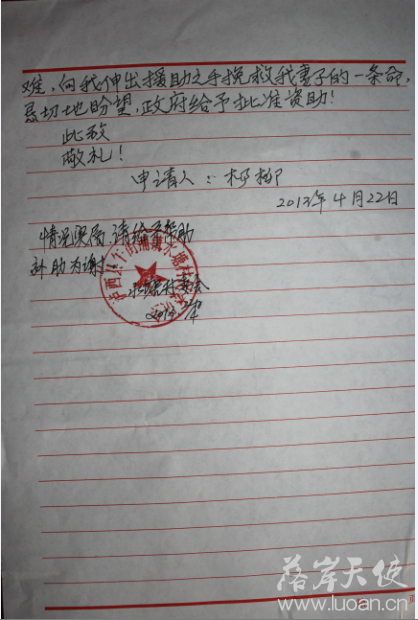 难，向我伸出援助之手挽救我妻子的一条命，
恳切地盼望，政府给予批准资助！
此致
敬礼！
申请人：
2013年4月22日
情况属实，请给予帮助
补助为谢
村委会
落岸天使
www.luoan.cn